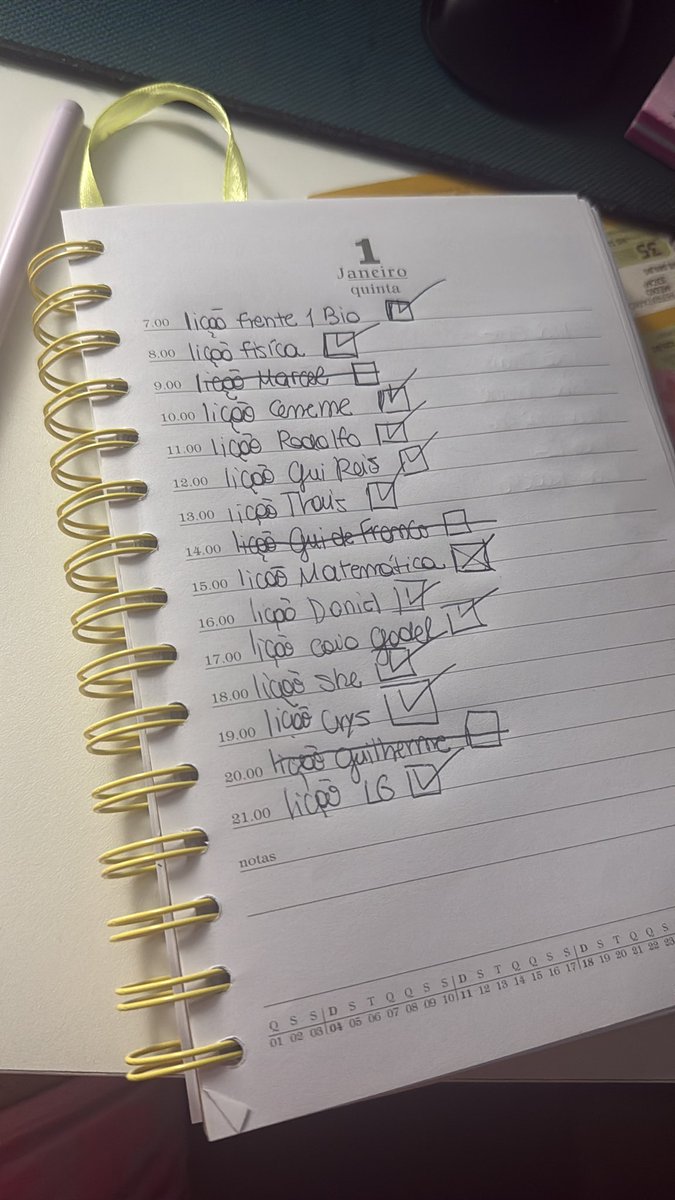 1
Janeiro
quinta
7.00 lição frente 1 Bio
8.00 lição física
9.00 lição Marcel
10.00 lição Cememe
11.00 lição Rodolfo
12.00 lição Gui Reis
13.00 lição Thais
14.00 lição Gui de Franco
15.00 lição Matemática
16.00 lição Daniel
17.00 lição Caio godel
18.00 lição She
19.00 lição Crys
20.00 lição Guilherme
21.00 lição LG
notas
Q S S D S T Q Q S S D S T Q Q S S D S T Q Q S
01 02 03 04 05 06 07 08 09 10 11 12 13 14 15 16 17 18 19 20 21 22 23
35